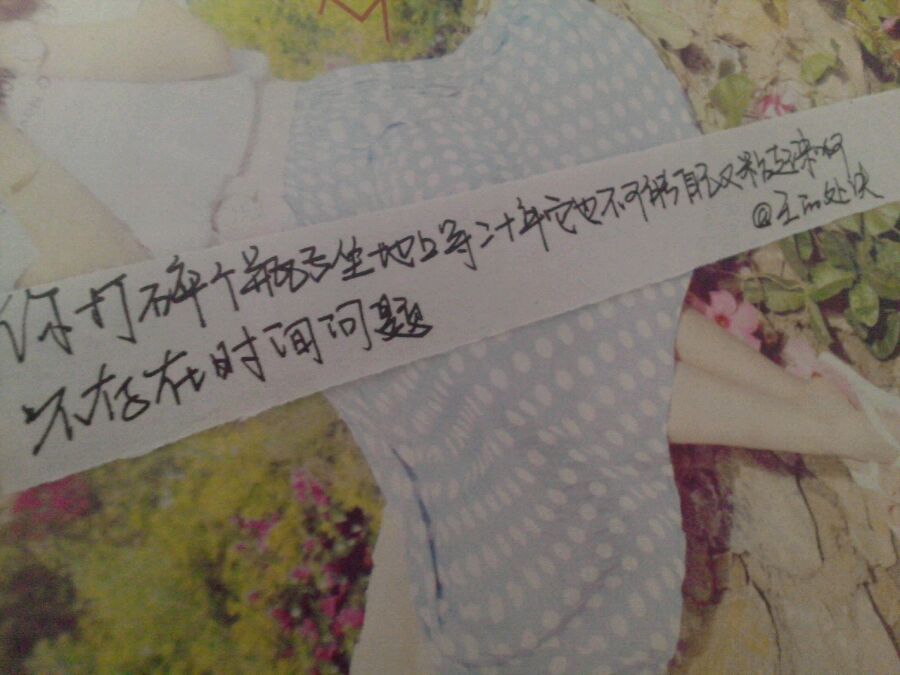 你打碎个瓶子坐地上等二十年它也不可能自己又粘起来啊
不存在时间问题